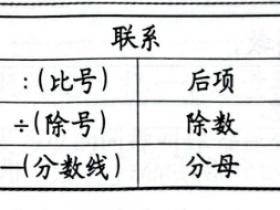 联系
:(比号) 后项
÷(除号) 除数
—(分数线) 分母